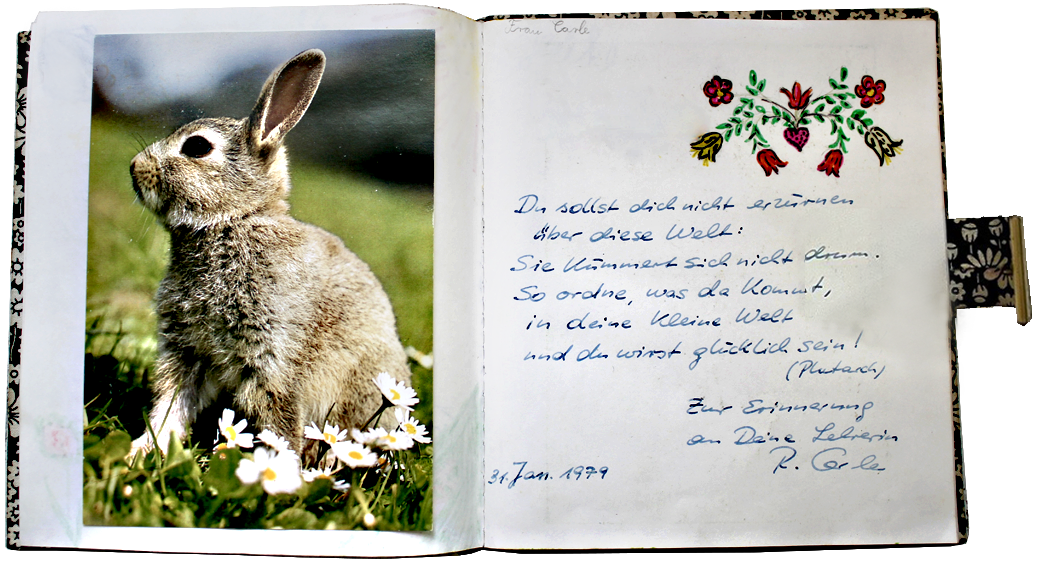 Frau Carle
Du sollst dich nicht erzürnen
über diese Welt:
Sie kümmert sich nicht drum.
So ordne, was da kommt,
in deine kleine Welt
und du wirst glücklich sein!
(Plutarch)
Zur Erinnerung
an Deine Lehrerin
R. Carle
31. Jan. 1979